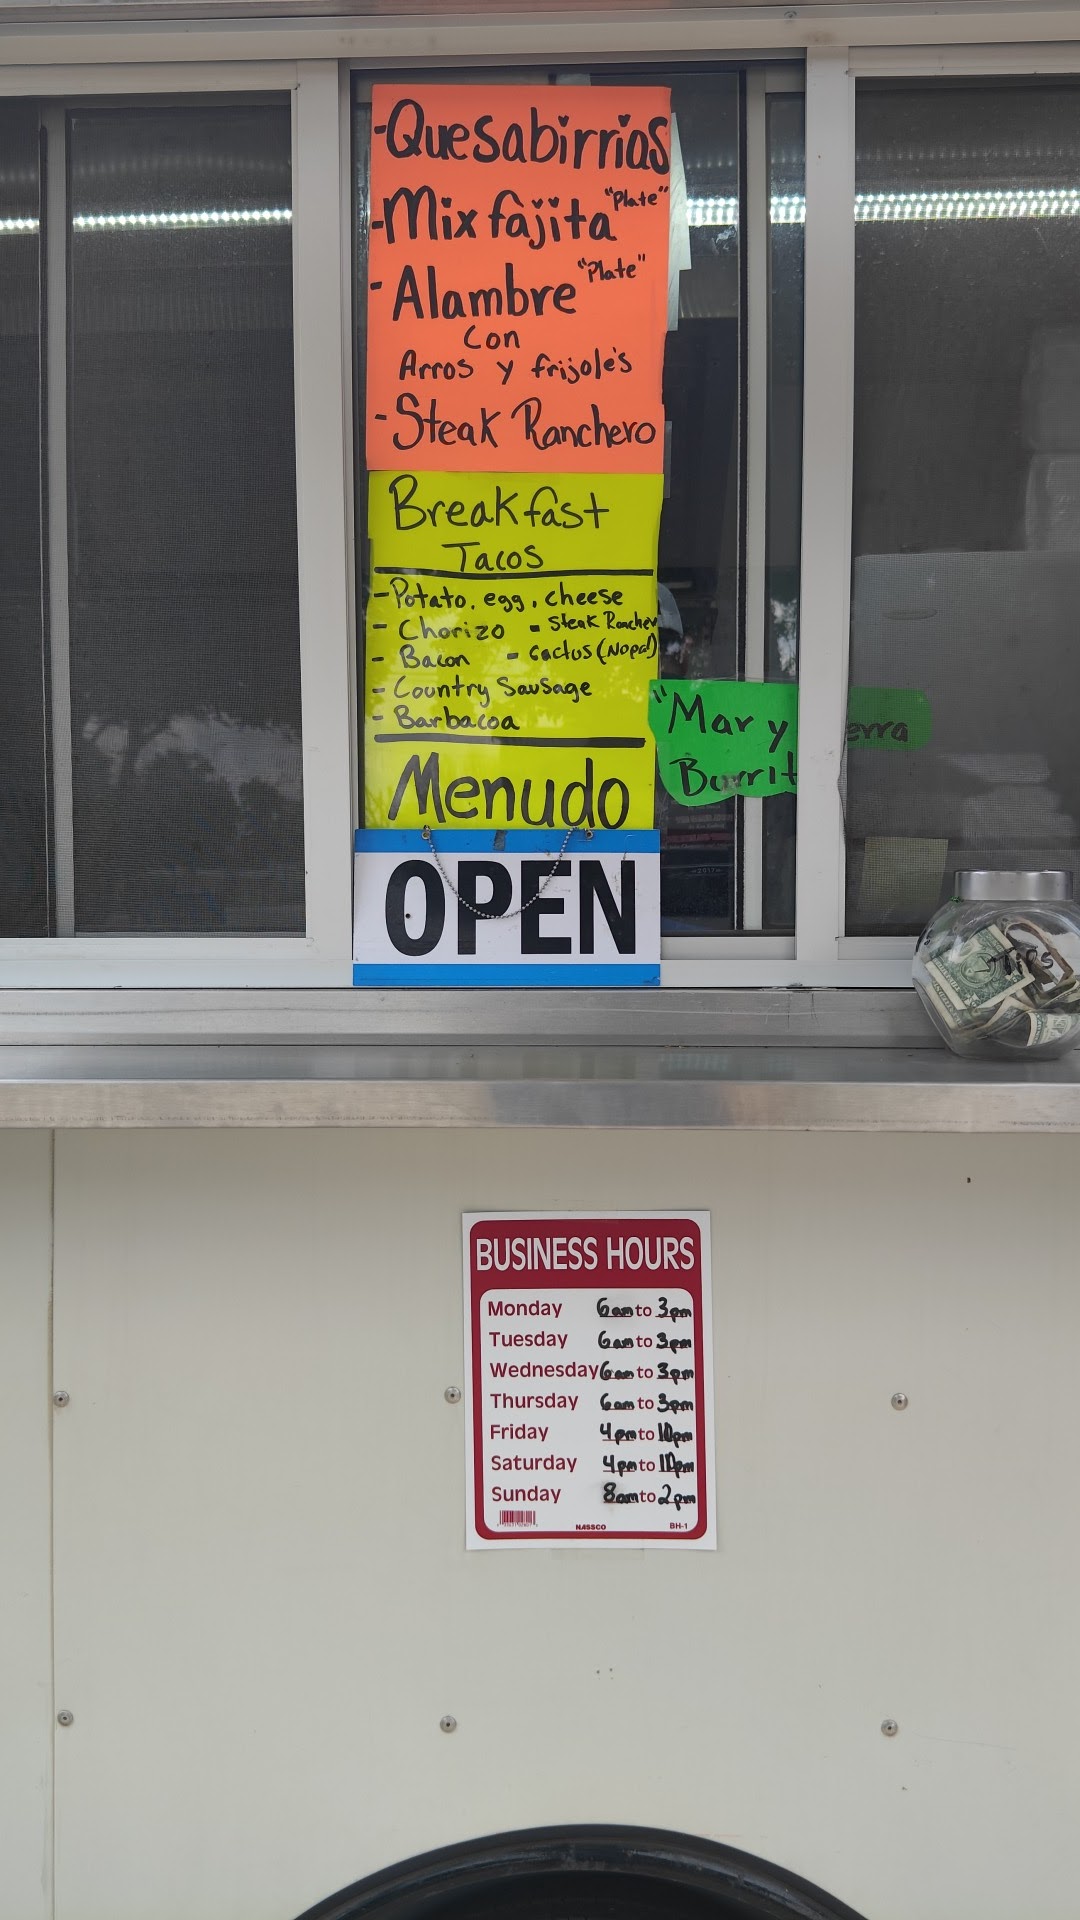 -Quesabirrias
-Mix fajita "Plate"
-Alambre "Plate"
Con
Arros y frijole's
-Steak Ranchero
Breakfast
Tacos
-Potato, egg, cheese
- Chorizo - Steak Ranchero
- Bacon - Cactus (Nopal)
- Country Sausage
- Barbacoa
Menudo
"Mar y
erra
Burrit
OPEN
TiPS
BUSINESS HOURS
Monday 6am to 3pm
Tuesday 6am to 3pm
Wednesday 6am to 3pm
Thursday 6am to 3pm
Friday 4pm to 10pm
Saturday 4pm to 10pm
Sunday 8am to 2pm
NASSCO
BH-1